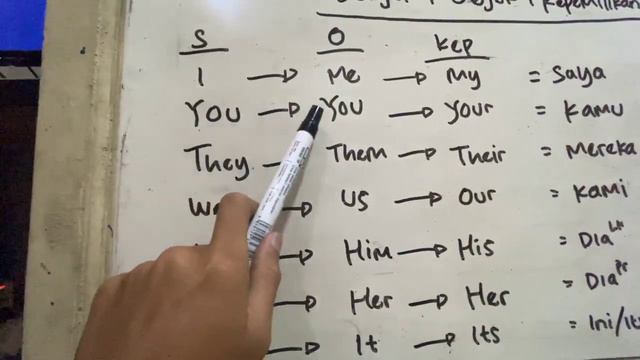 Kepemilikan
S O Kep
I → Me → My = Saya
You → You → Your = Kamu
They → Them → Their = Mereka
We → US → Our = Kami
→ Him → His = Dia Lk
→ Her → Her = Dia Pr
→ It → Its = Ini/It